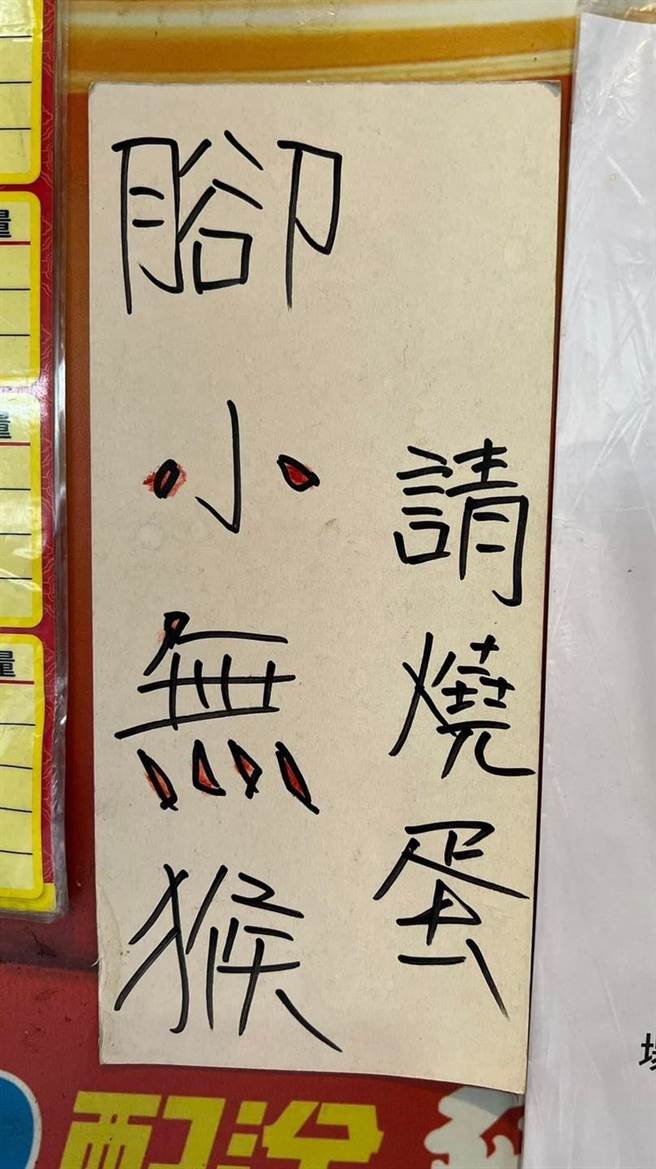 請燒蛋
腳小無猴
量
量
量